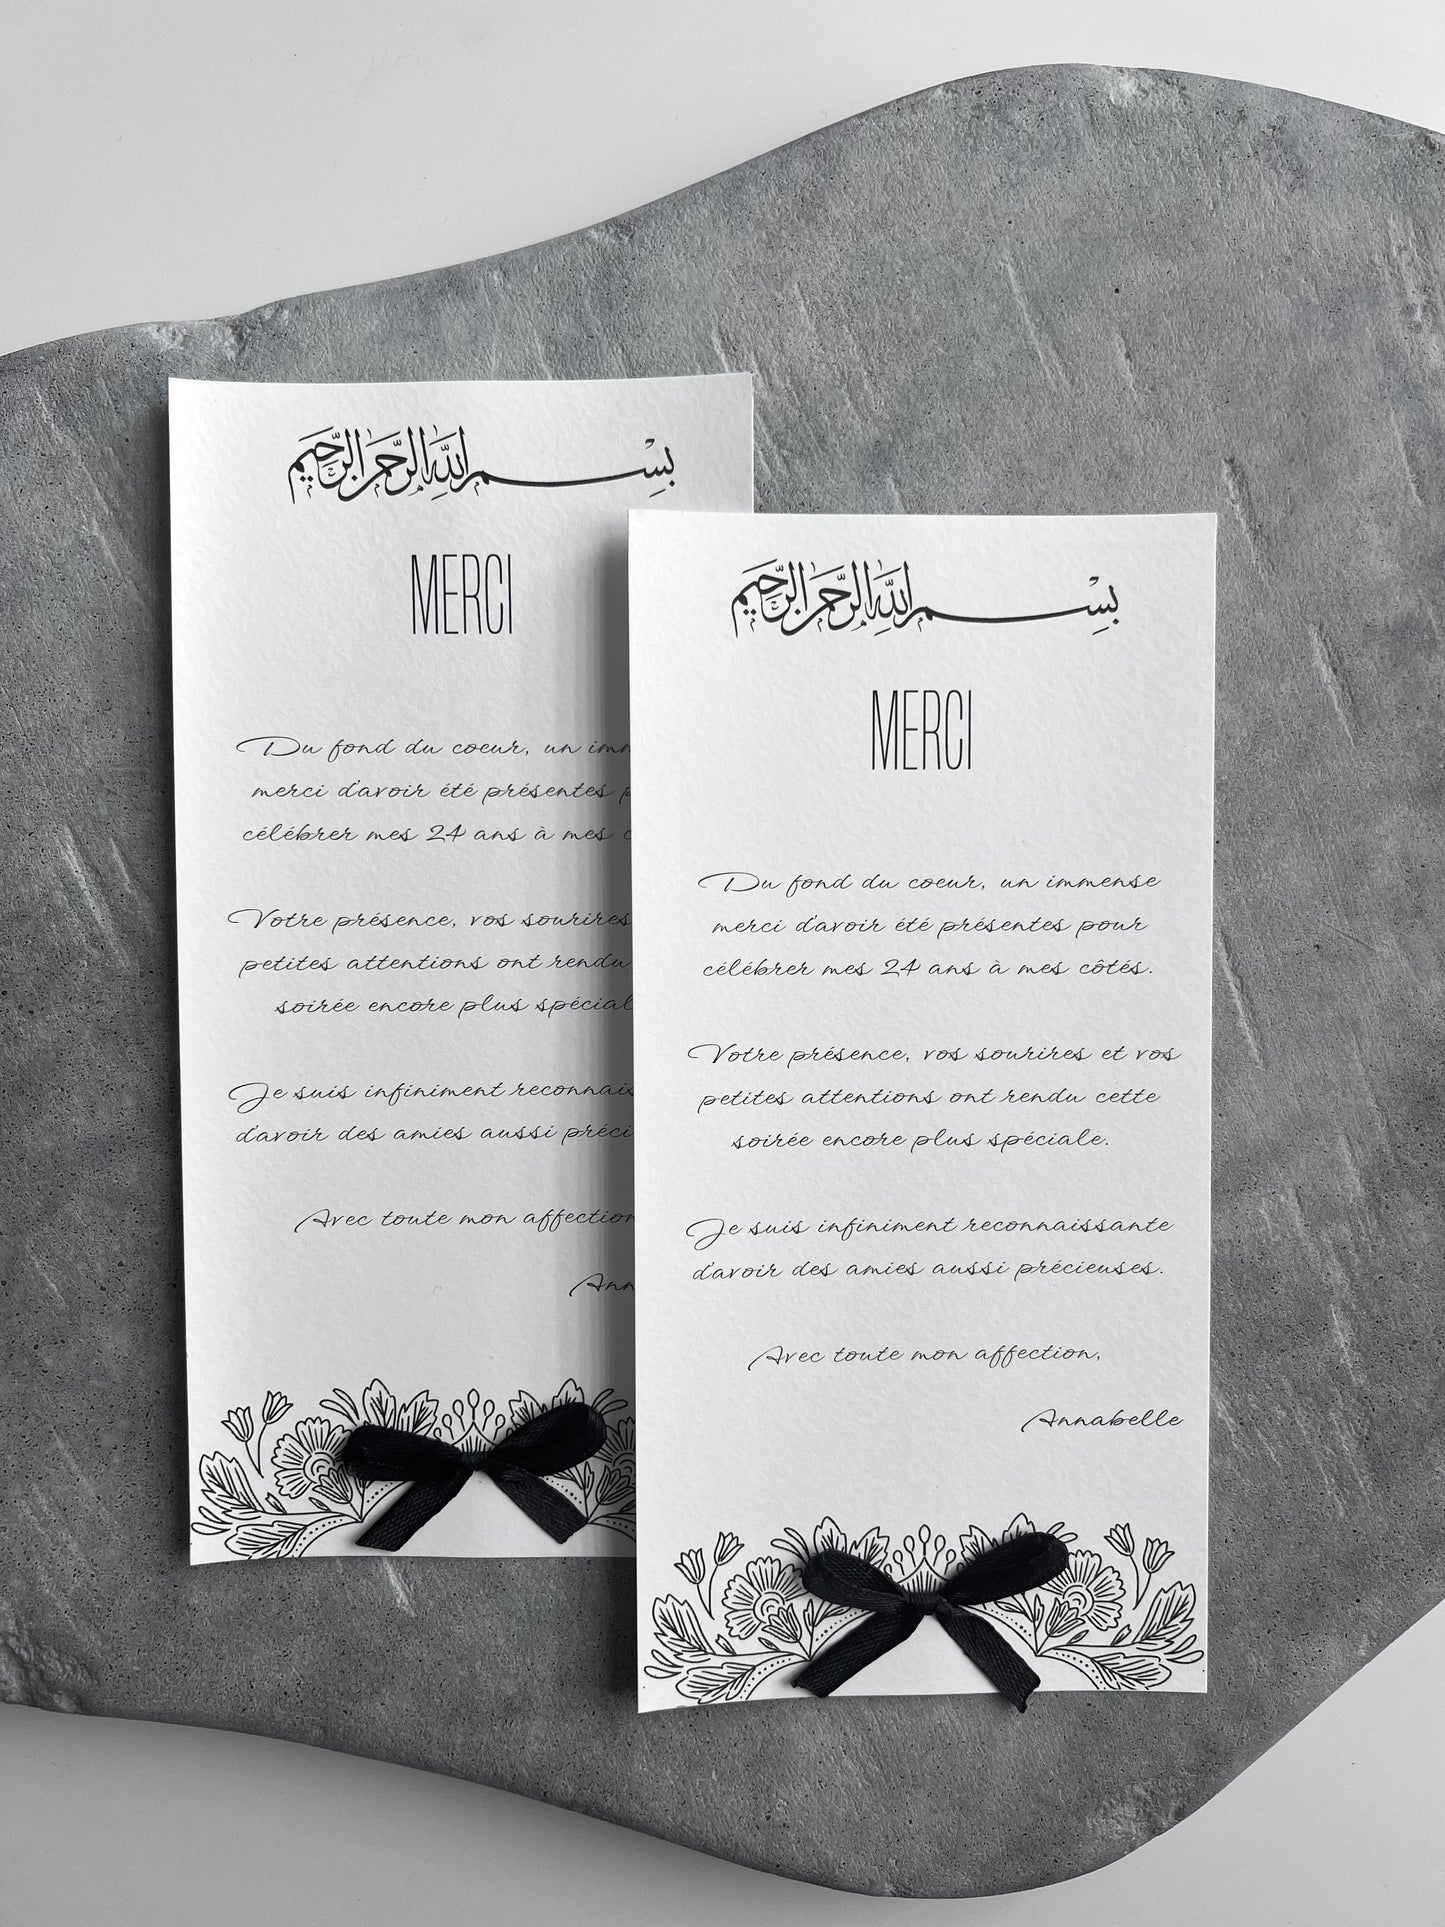 بِسْمِ اللَّهِ الرَّحْمَٰنِ الرَّحِيمِ
MERCI
Du fond du coeur, un imm
merci d'avoir été présentes p
célébrer mes 24 ans à mes c
Votre présence, vos sourires
petites attentions ont rendu
soirée encore plus spécial
Je suis infiniment reconnais
d'avoir des amies aussi préci
Avec toute mon affection
Ann
بِسْمِ اللَّهِ الرَّحْمَٰنِ الرَّحِيمِ
MERCI
Du fond du coeur, un immense
merci d'avoir été présentes pour
célébrer mes 24 ans à mes côtés.
Votre présence, vos sourires et vos
petites attentions ont rendu cette
soirée encore plus spéciale.
Je suis infiniment reconnaissante
d'avoir des amies aussi précieuses.
Avec toute mon affection,
Annabelle